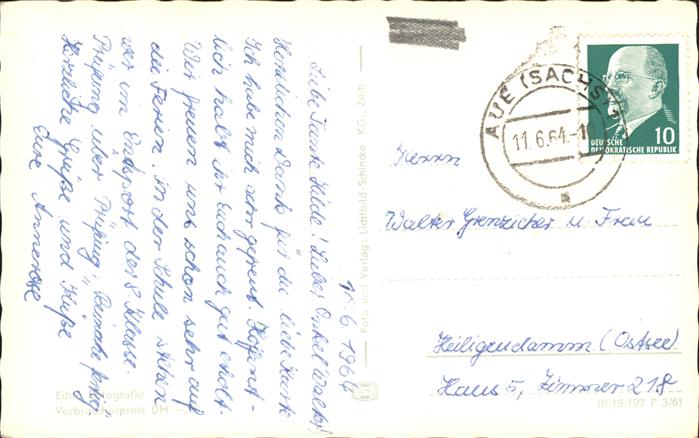 11. 6. 1964
Liebe Tante Hilde! Lieber Onkel Walter!
Herzlichen Dank für die liebe Karte
Ich habe mich sehr gefreut. Hoffent-
lich habt ihr Euch auch gut erholt.
Wir freuen uns schon sehr auf
die Ferien. In der Schule stehen
wir im Endspurt der 8. Klasse.
Prüfung über Prüfung.
Herzliche Grüße und Küße
Eure Annerose
Edition Fotografie
Verbraucherpreis DM
Foto und Verlag: Lichtbild Schincke KG., Zeitz
AUE (SACHS)
11.6.64.-10
DEUTSCHE
DEMOKRATISCHE REPUBLIK
10
Herrn
Walter Grenzicher u. Frau
Heiligendamm (Ostsee)
Haus 5, Zimmer 218
III/18/197 P 3/61